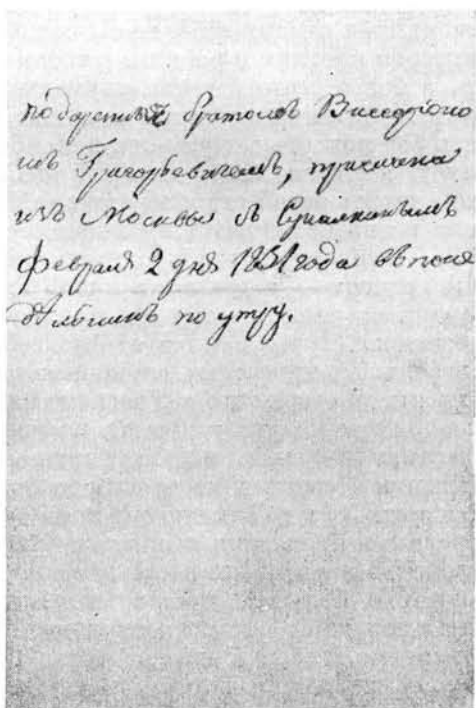 братомъ Виссаріоно
мъ Григорьевичемъ, прислана
изъ Москвы съ
февраля 2 дня 1831 года въ поне
дѣльникъ по утру.